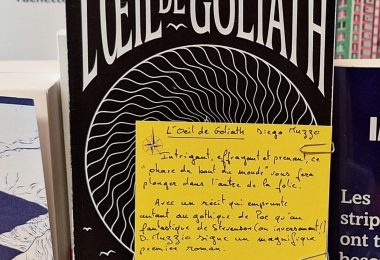 Hachette
L'ŒIL DE GOLIATH
L'Oeil de Goliath Diego Muzzo
Intrigant, effrayant et prenant, ce
"phare du bout du monde" vous fera
plonger dans l'antre de la folie.
Avec un récit qui emprunte
autant au gothique de Poe qu'au
fantastique de Stevenson (ou inversement!)
D. Muzzio signe un magnifique
premier roman.
Les
strip
ont t
beso